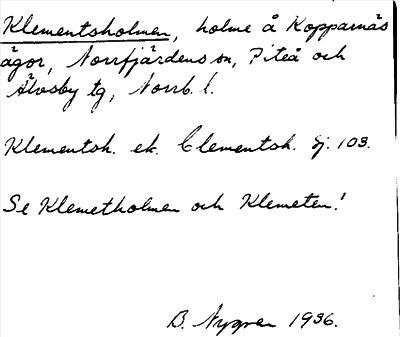 Klementsholmen, holme å Kopparnäs
ägor, Norrfjärdens sn, Piteå och
Älvsby tg, Norrb. l.
Klementsh. ek. Clementsh. Sj. 103.
Se Klemetholmen och Klemeten!
B. Nygren 1936.